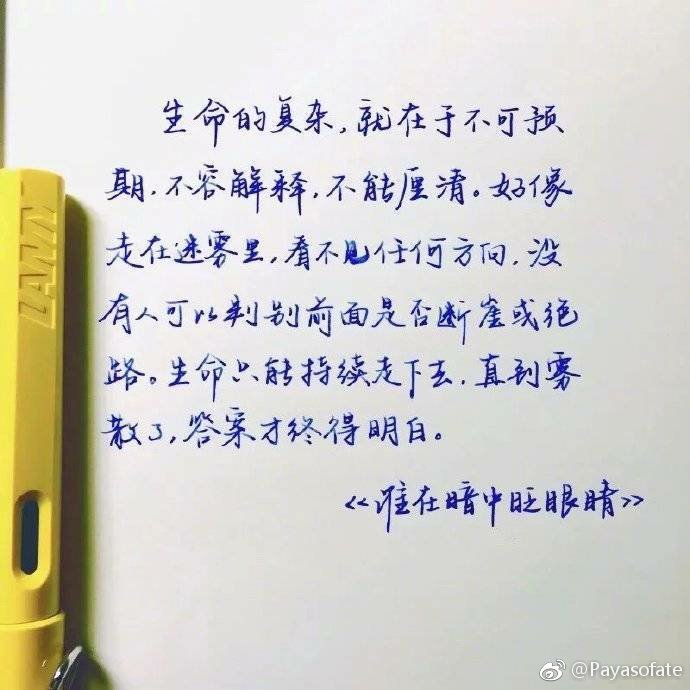 生命的复杂,就在于不可预
期,不容解释,不能厘清。好像
走在迷雾里,看不见任何方向,没
有人可以判别前面是否断崖或绝
路。生命只能持续走下去,直到雾
散了,答案才终得明白。
《谁在暗中眨眼睛》
LAMY
@Payasofate